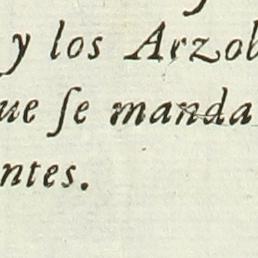 y los Arzob
ue ſe manda
ntes.